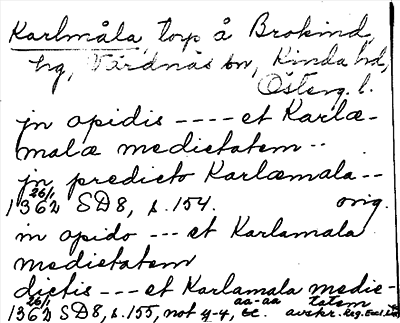 Karlmåla, torp å Brokind,
hg, Vårdnäs sn, Kinda hd,
Österg. l.
jn opidis ---- et Karlæ-
malæ medietatem --
jn predicto Karlæmala --
1362 26/1 SD8, s. 154. orig.
in opido --- et Karlamala
medietatem
dictis --- et Karlamala medie-
tatem
1362 26/1 SD8, s. 155, not y-y, aa-aa &c. avskr.